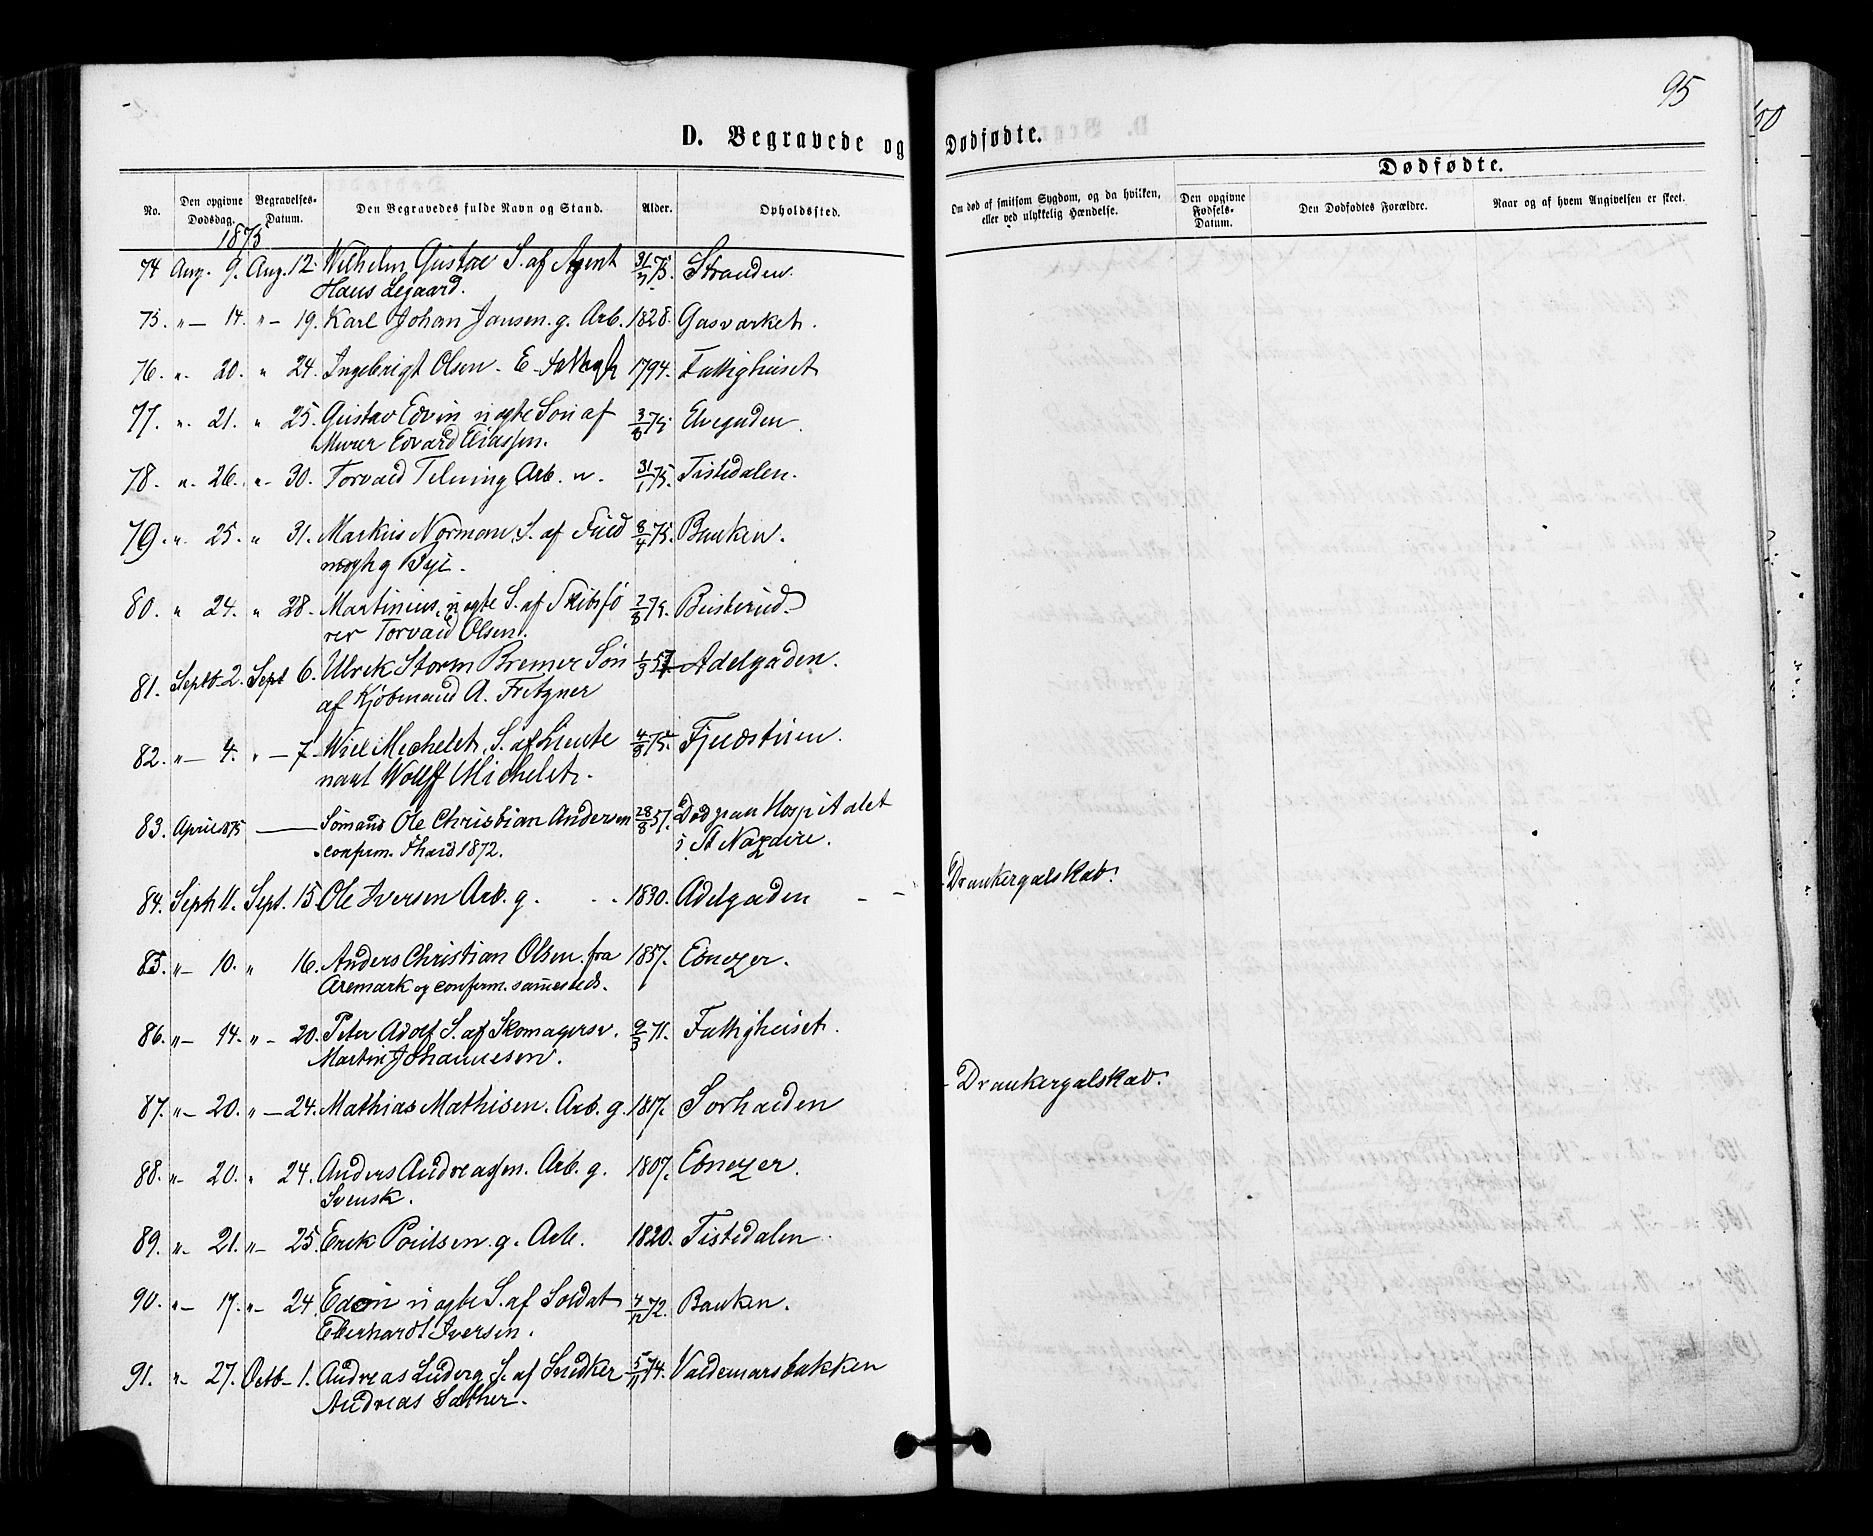 95
D. Begravede og Dødfødte.
Dødfødte.
No. Den opgivne Dødsdag. Begravelses-Datum. Den Begravedes fulde Navn og Stand. Alder. Opholdssted. Om død af smitsom Sygdom, og da hvilken, eller ved ulykkelig Hændelse. Den opgivne Fødsels-Datum. Den Dødfødtes Forældre. Naar og af hvem Angivelsen er skeet.
1875
74 Aug. 9. Aug. 12. Wilhelm Gustav S. af Agent 31/7 75. Stranden.
Hans Legaard.
75. " — 14. " — 19. Karl Johan Jansen. g. Arb. 1828. Gasværket.
76. " 20. " 24. Ingebrigt Olsen. E. 1794. Fattighuset
77. " 21. " 25. Gustav Edvin uægte Søn af 3/8 75 Elvegaden.
Murer Edvard Eliassen.
78. " 26. " 30. Torvald Telning Arb. u. 31/1 75. Tistedalen.
79. " 25. " 31. Markus Norman. S. af Fuld 8/4 75. Banken.
mægtig Bye.
80. " 24. " 28. Martinius, uægte S. af Skibsfø 7/8 75. Busterud.
rer Torvald Olsen.
81. Septb. 2. Sept 6. Ulrik Storm Bremer Søn 1/3 57 Adelgaden.
af Kjøbmand A. Fritzner
82. " — 4. " — 7. Wiel Michelet. S. af Lieute 4/8 75. Fjeldstuen.
nant Wolff Michelet.
83. April 1875 — Sømand Ole Christian Andersen 28/8 57. Død paa Hospitalet
confirm. Fhald 1872. i St Nazaire.
84. Septb 11. Sept. 15. Ole Iversen Arb. g. 1830. Adelgaden — — Drankergalskab.
85. " — 10. " 16. Anders Christian Olsen. fra 1857. Ebnezer.
Aremark og confirm. sammesteds.
86. " — 14. " — 20. Peter Adolf S. af Skomagersv. 9/3 71. Fattighuset.
Martin Johannesen.
87. " — 20. " — 24. Mathias Mathisen. Arb. g. 1817. Sorhalden — Drankergalskab.
88. " 20. " 24. Anders Andreassen. Arb. g. 1807. Ebnezer.
Svensk.
89. " 21. " — 25. Erik Poulsen. g. Arb. 1820. Tistedalen.
90. " — 17. " — 24. Edvin uægte S. af Soldat 4/12 72. Banken.
Eberhardt Iversen.
91. " 27. Octb — 1. Andreas Ludvig S. af Snedker 5/11 74. Valdemarsbakken
Andreas Sæther.